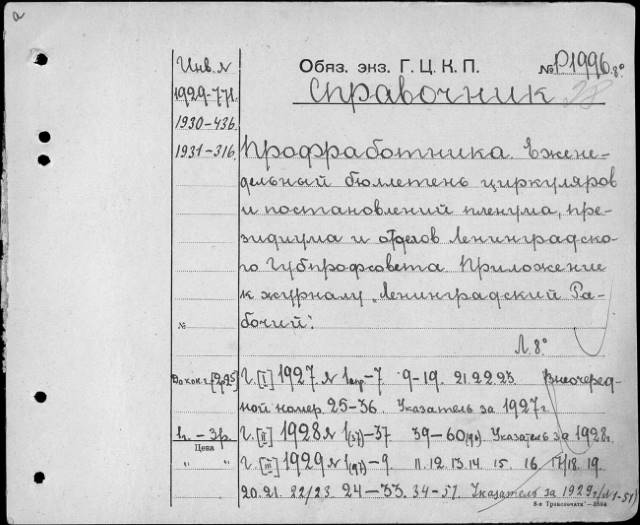 a
Инв. №
1929-771.
1930-436.
1931-316.
Обяз. экз. Г. Ц. К. П.
№ Р1996 8°
Справочник 28
Профработника. Ежене-
дельный бюллетень циркуляров
и постановлений пленума, пре-
зидиума и отделов Ленинградско-
го Губпрофсовета. Приложение
к журналу „Ленинградский Ра-
бочий".
№
Л. 8°
До кон. г. [2р.25]
Г. [I] 1927. № 1 апр.-7 9-19. 21.22.23. Внеочеред-
ной номер 25-36. Указатель за 1927 г.
1г. - 3р.
Цена
Г. [II] 1928 № 1(37)-37 39-60(96). Указатель за 1928г.
" "
Г. [III] 1929 № 1(97)-9. 11.12.13.14 15. 16 17/18. 19.
20.21. 22/23 24-33. 34-51. Указатель за 1929 г. (№ 1-51)